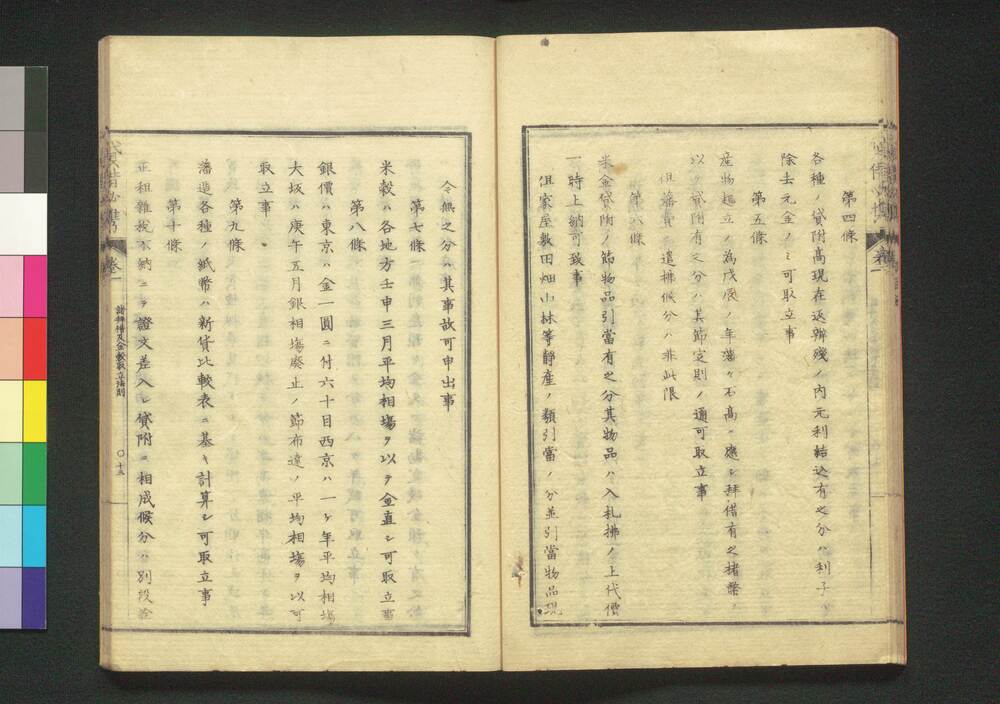 第四條
各種ノ貸附高現在返辨殘ノ内元利結込有之分ハ利子ハ
除去元金ノミ可取立事
第五條
産物趣立ノ為戊辰ノ年藩々石高ニ應シ拜借有之楮幣ヲ
以テ貸附有之分ハ其節定則ノ通可取立事
但藩費ニ遣拂候分ハ非此限
第六條
米金貸附ノ節物品引當有之分其物品ハ入札拂ノ上代價
一時上納可致事
但家屋敷田畑山林等静産ノ類引當ノ分並引當物品現
今無之分ハ其事故可申出事
第七條
米穀ハ各地方壬申三月平均相場ヲ以テ金直シ可取立事
第八條
銀價ハ東京ハ金一圓ニ付六十目西京ハ一ヶ年平均相場
大坂ハ庚午五月銀相場廢止ノ節布達ノ平均相場ヲ以可
取立事
第九條
藩造各種ノ紙幣ハ新貨比較表ニ基キ計算シ可取立事
第十條
正租雜税不納ニテ證文差入レ貸附ニ相成候分ハ別段
卷一
諸拜借及金穀取立法則
〇十五